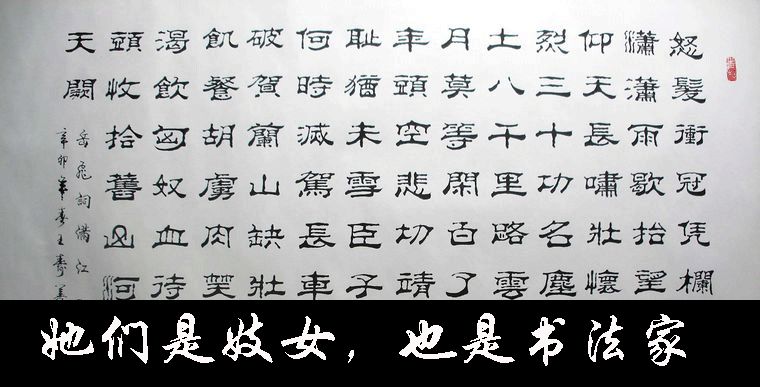 怒髮衝冠凭欄
瀟瀟雨歇抬望
仰天長嘯壯懷
烈三十功名塵
土八千里路雲
月莫等閑白了
年頭空悲切靖
恥猶未雪臣子
何時滅駕長車
破賀蘭山缺壯
飢餐胡虜肉笑
渴飲匈奴血待
頭收拾舊山河
天闕
岳飛詞滿江
辛卯年春王壽
她们是妓女，也是书法家